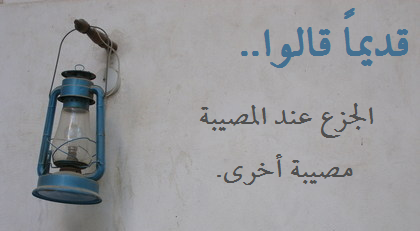 قديماً قالوا..
الجزع عند المصيبة
مصيبة أخرى.